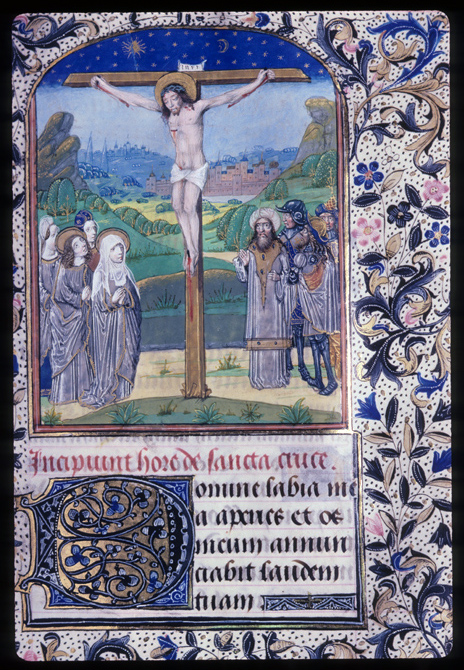 INRI
Incipiunt hore de sancta cruce.
Domine labia me
a aperies et os
meum annun
ciabit laudem
tuam